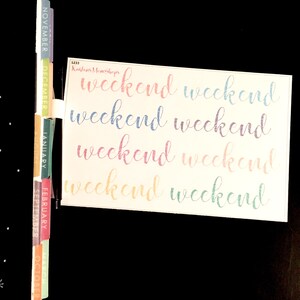 NOVEMBER
DECEMBER
JANUARY
FEBRUARY
weekend weekend
weekend weekend
weekend weekend
weekend weekend